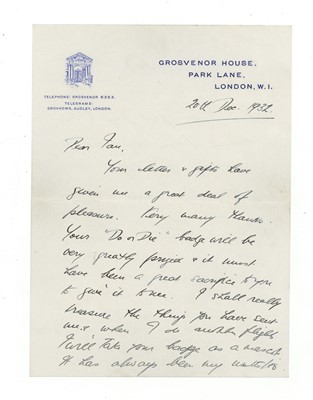 GROSVENOR HOUSE,
PARK LANE,
LONDON, W.I.
TELEPHONE: GROSVENOR 6363.
TELEGRAMS:
GROVHOWS, AUDLEY, LONDON.
20th Dec. 1932
Dear Ian,
Your letter & gifts have
given me a great deal of
pleasure. Very many thanks.
Your "Do or Die" badge will be
very greatly & it must
have been a great sacrifice to you
to give it to me. I shall really
treasure the things you have sent
me & when I do another flight
I will take your badge as a mascot
It has always been my